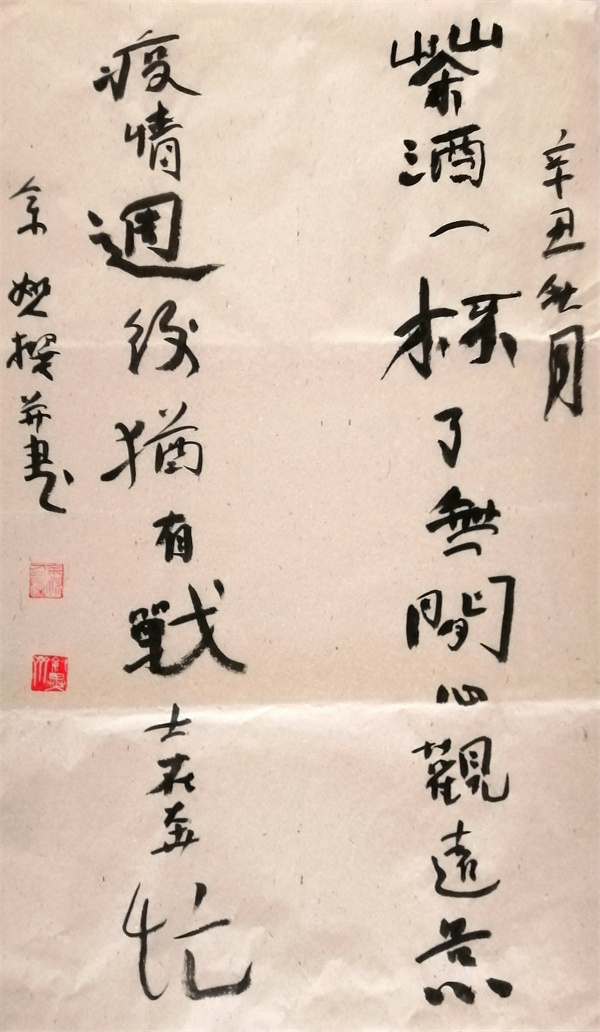 辛丑秋月
茶酒一杯了無閒心觀遠景
疫情週後猶有戰士在奔忙
余 撰并書